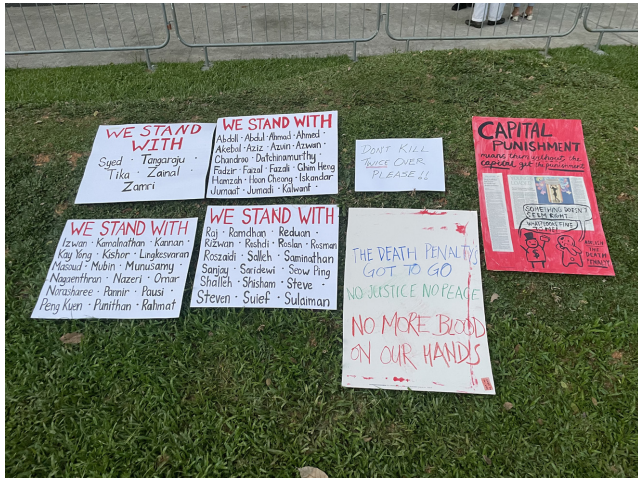 WE STAND
WITH
Syed · Tangaraju ·
Tika · Zainal
Zamri
WE STAND WITH
Abdoll · Abdul · Ahmad · Ahmed ·
Akebal · Aziz · Azuin · Azwan ·
Chandroo · Datchinamurthy ·
Fadzir · Faizal · Fazali · Ghim Heng
Hamzah · Hoon Cheong · Iskandar
Jumaat · Jumadi · Kalwant ·
DON'T KILL
TWICE OVER
PLEASE !!
CAPITAL
PUNISHMENT
means them without the
capital get the punishment
SOMETHING DOESN'T
SEEM RIGHT...
WE STAND WITH
Izwan · Kamalnathan · Kannan ·
Kay Yong · Kishor · Lingkesvaran
Masoud · Mubin · Munusamy ·
Nagaenthran · Nazeri · Omar
Norasharee · Pannir · Pausi ·
Peng Kuen · Punithan · Rahmat
WE STAND WITH
Raj · Ramdhan · Reduan ·
Rizwan · Roshdi · Roslan · Rosman
Roszaidi · Salleh · Saminathan
Sanjay · Saridewi · Seow Ping
Shalleh · Shisham · Steve ·
Steven · Suief · Sulaiman
THE DEATH PENALTY'S
GOT TO GO
NO JUSTICE NO PEACE
NO MORE BLOOD
ON OUR HANDS
ABOLISH
THE
DEATH
PENALTY